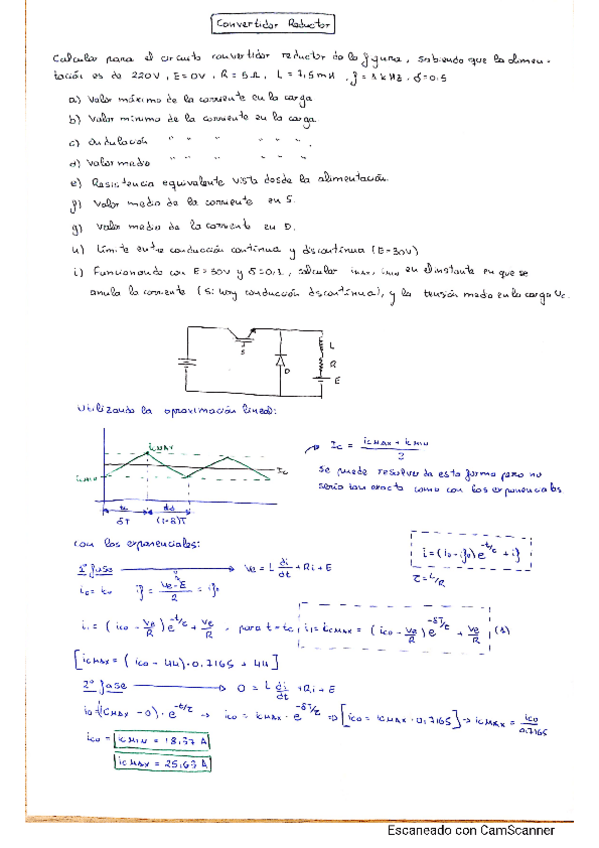 Convertidor Reductor
Calcular para el circuito convertidor reductor de la figura, sabiendo que la alimen-
tación es de 220V, E=0V, R=5Ω, L=7,5mH, f=1kHz, δ=0.5
a) Valor máximo de la corriente en la carga
b) Valor mínimo de la corriente en la carga
c) Ondulación " " " " " " .
d) Valor medio " " " " " "
e) Resistencia equivalente vista desde la alimentación.
f) Valor medio de la corriente en S.
g) Valor medio de la corriente en D.
h) Límite entre conducción continua y discontinua (E=30V)
i) Funcionando con E=30V y δ=0.1, calcular imax, imin en el instante en que se
anula la corriente (si hay conducción discontinua), y la tensión media en la carga Uc.
S
D
L
R
E
Utilizando la aproximación lineal:
icMAX
icMIN
Ic
δT
(1-δ)T
Ic = (icMAX + icMIN)/2
Se puede resolver de esta forma pero no
sería tan exacto como con las exponenciales
Con las exponenciales:
i=(i0-if)e^-t/τ + if
τ=L/R
1º fase → Ve = L di/dt + Ri + E
i1 = (ic0 - Ve/R) e^-t/τ + Ve/R , para t=tc, i1=icMAX = (ic0 - Ve/R) e^-δT/τ + Ve/R (1)
[icMAX = (ic0 - 44)·0.7165 + 44]
2º fase → 0 = L di/dt + Ri + E
[ic0 = icMAX · 0,7165] → icMAX = ic0/0.7165
ic0 = icMIN = 18,37 A
icMAX = 25,63 A
Escaneado con CamScanner